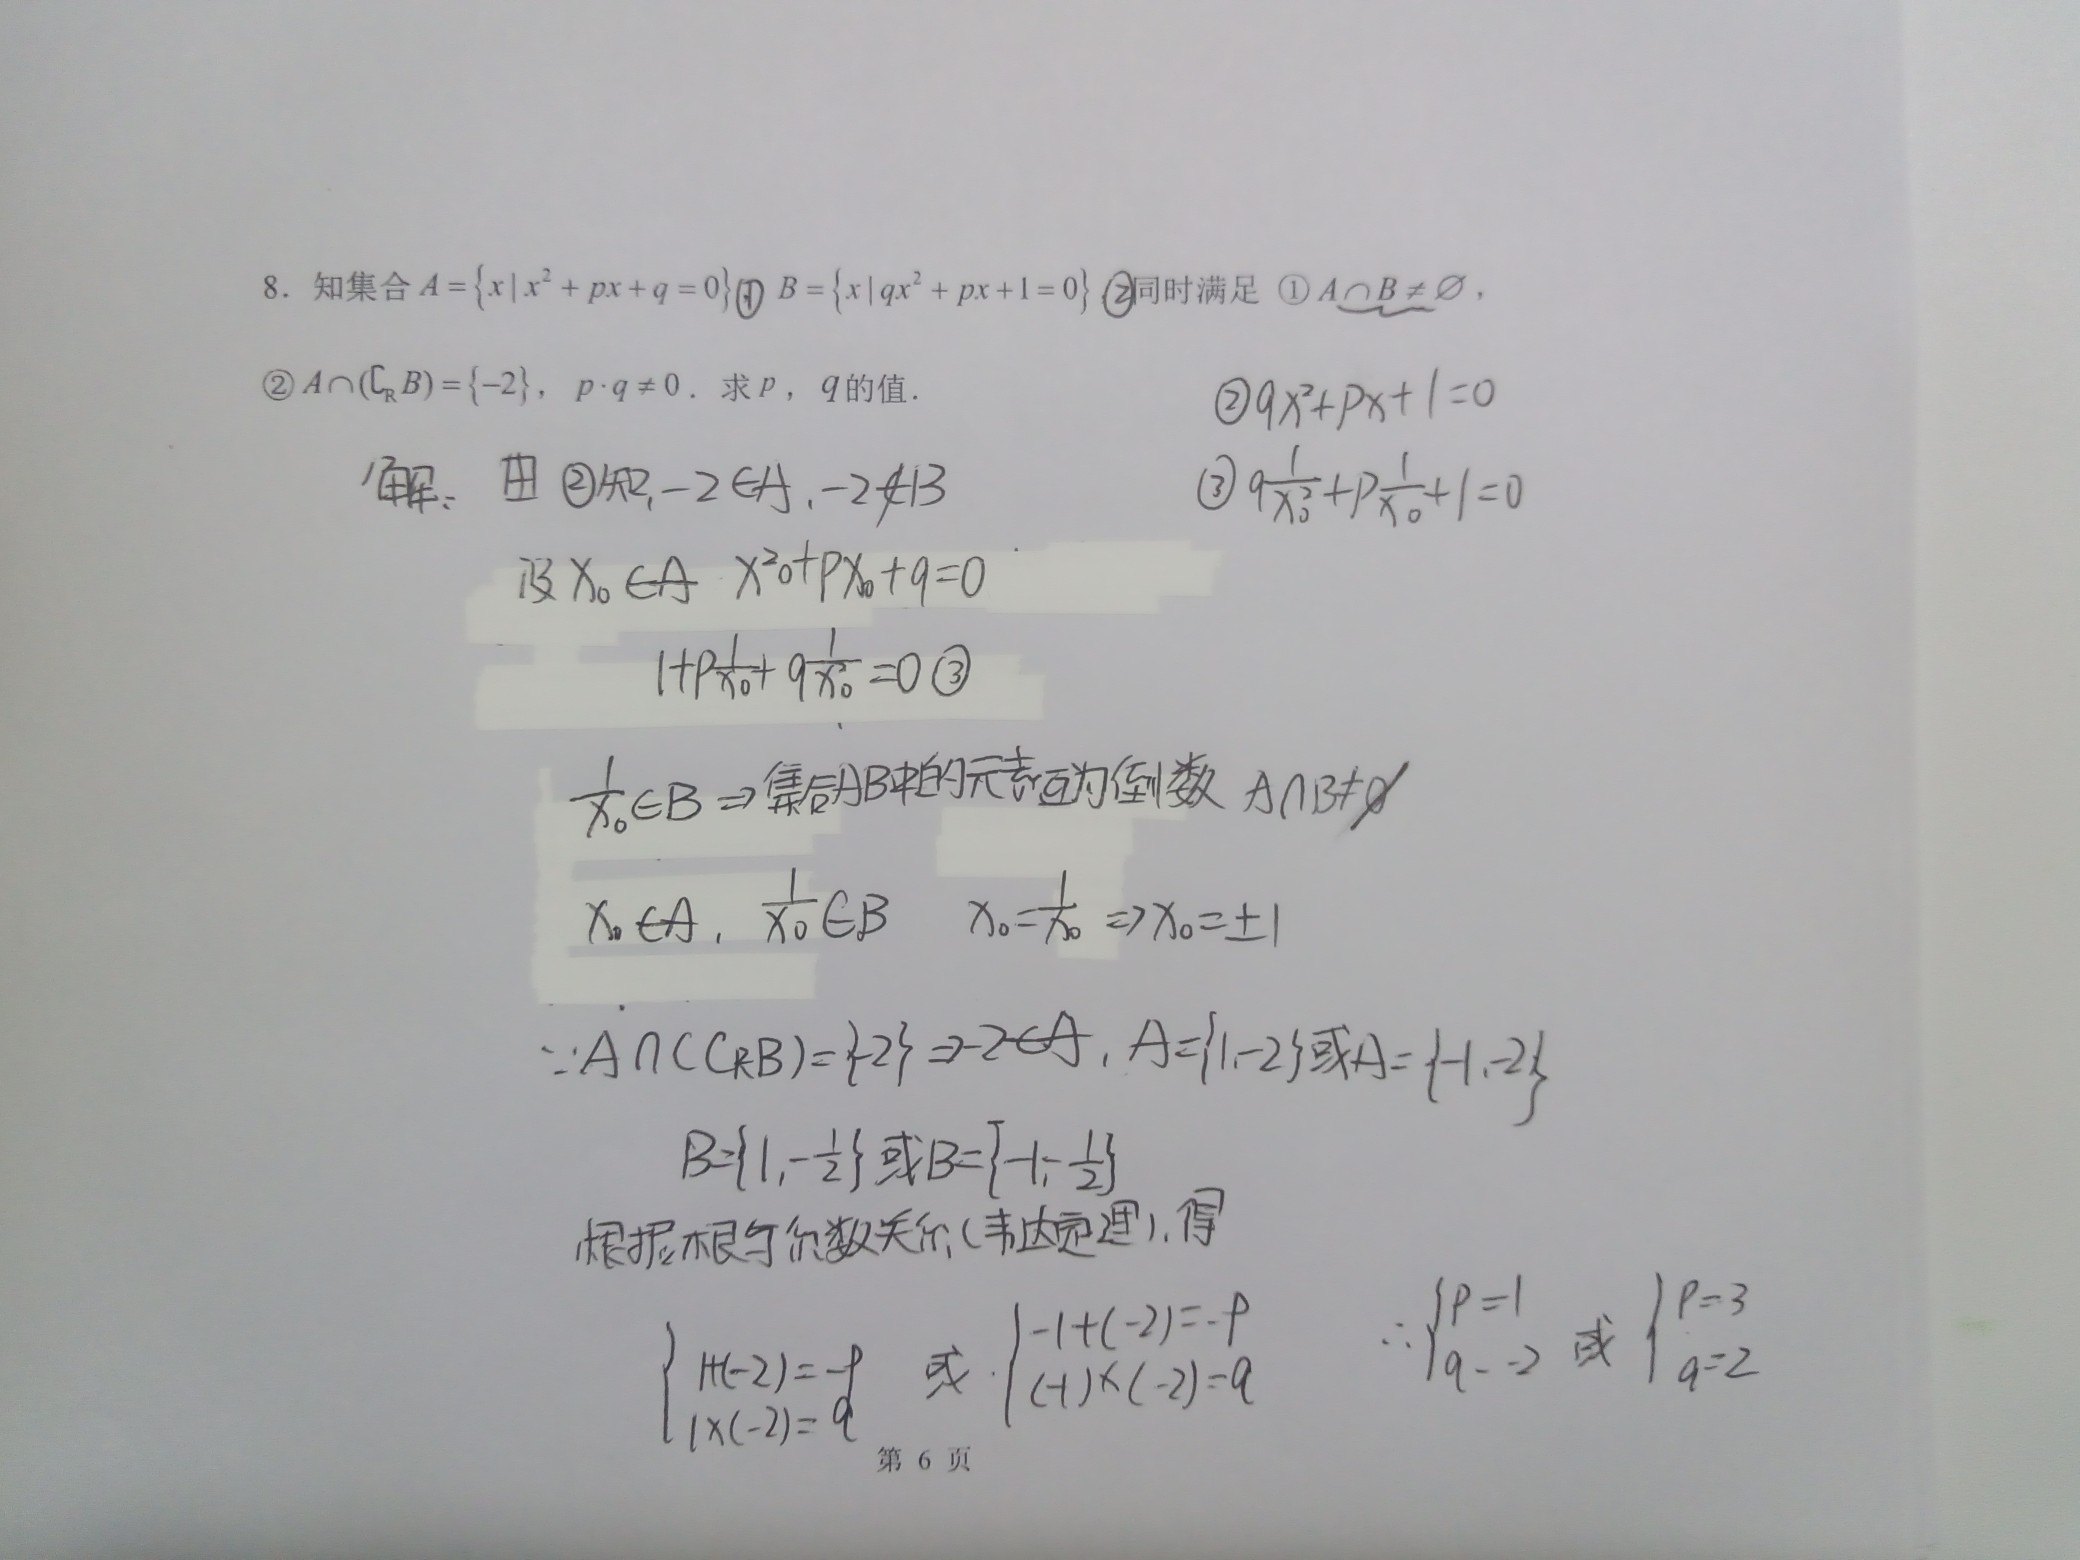 8. 知集合 A={x|x²+px+q=0}① B={x|qx²+px+1=0}②同时满足 ①A∩B≠∅,
②A∩(∁ᵣB)={-2}, p·q≠0. 求p, q的值.
②qx²+px+1=0
③q1/x₀²+p1/x₀+1=0
解: 由②知,-2∈A,-2∉B
设x₀∈A x²₀+px₀+q=0
1+p1/x₀+q1/x₀²=0③
1/x₀∈B⇒集合AB中的元素互为倒数 A∩B≠∅
x₀∈A, 1/x₀∈B x₀=1/x₀⇒x₀=±1
∵A∩(CRB)={-2}⇒-2∈A, A={1,-2}或A={-1,-2}
B={1,-1/2}或B={-1,-1/2}
根据根与系数关系(韦达定理),得
{1+(-2)=-p 或 {-1+(-2)=-p ∴{p=1 或 {p=3
1×(-2)=q (-1)×(-2)=q q=-2 q=2
第 6 页